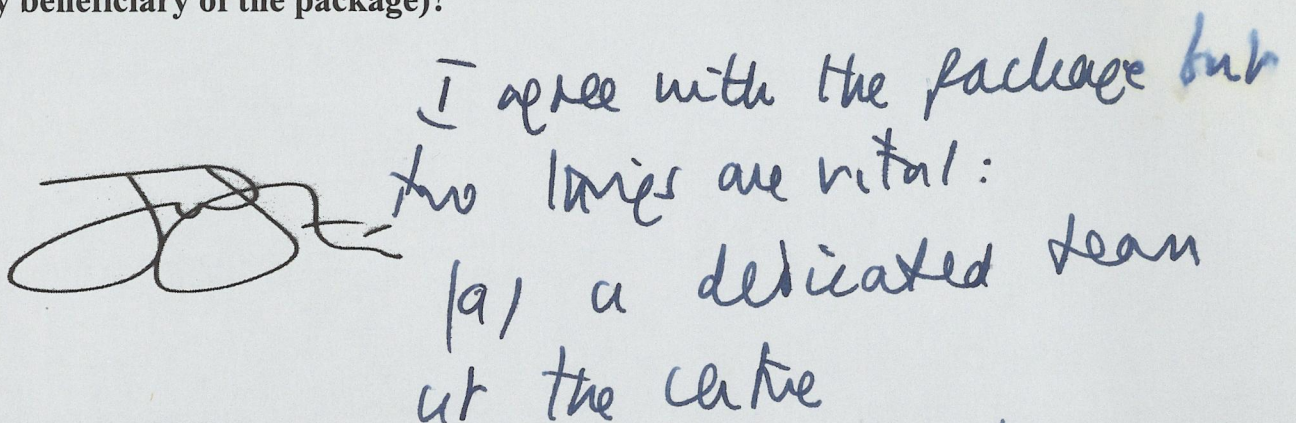 y beneficiary of the package)?
I agree with the package but
two things are vital:
(a) a dedicated team
at the centre